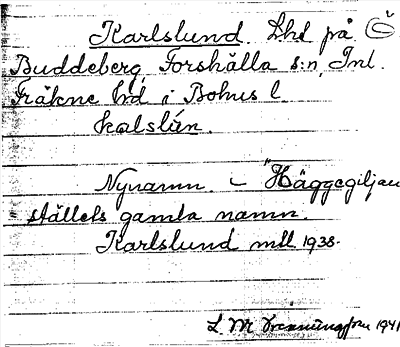 Karlslund. Lht på
Buddeberg, Forshälla s:n, Inl.
Fräkne hd i Bohus l.
kalslún.
Nynamn. – "Häggegiljan
ställets gamla namn.
Karlslund mtl 1938.
L M 1941